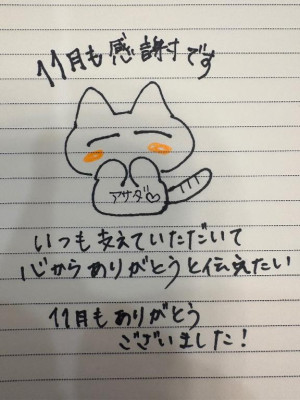 11月も感謝です
アサダ♡
いつも支えていただいて
心からありがとうと伝えたい
11月もありがとう
ございました!